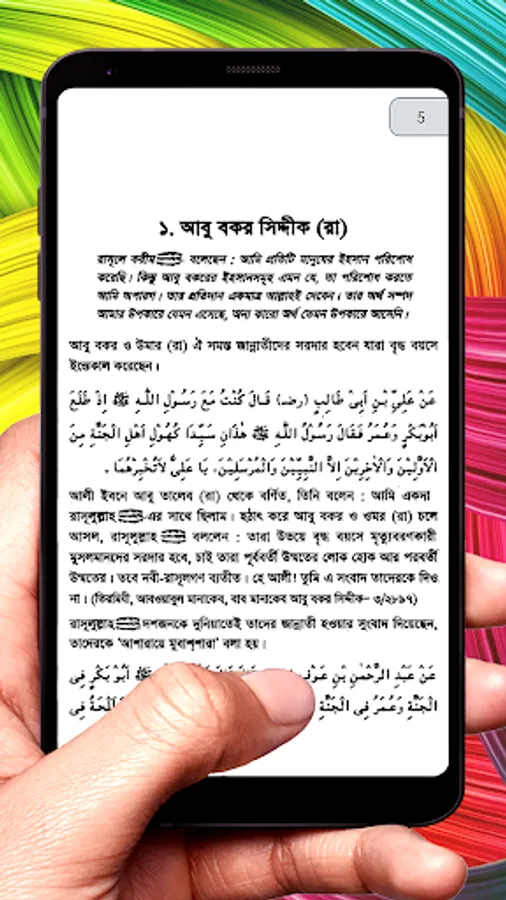 5
১. আবু বকর সিদ্দীক (রা)
রাসূলে করীম ﷺ বলেছেন : আমি প্রতিটি মানুষের ইহসান পরিশোধ
করেছি। কিন্তু আবু বকরের ইহসানসমূহ এমন যে, তা পরিশোধ করতে
আমি অপারগ। তার প্রতিদান একমাত্র আল্লাহই দেবেন। তার অর্থ সম্পদ
আমার উপকারে যেমন এসেছে, অন্য কারো অর্থ তেমন উপকারে আসেনি।
আবু বকর ও উমার (রা) ঐ সমস্ত জান্নাতীদের সরদার হবেন যারা বৃদ্ধ বয়সে
ইন্তেকাল করেছেন।
عَنْ عَلِىِّ بْنِ اَبِىْ طَالِبٍ (رضـ) قَالَ كُنْتُ مَعَ رَسُوْلِ اللّٰهِ ﷺ اِذْ طَلَعَ
اَبُوْبَكْرٍ وَعُمَرُ فَقَالَ رَسُوْلُ اللّٰهِ ﷺ هٰذَانِ سَيِّدَا كُهُوْلِ اَهْلِ الْجَنَّةِ مِنَ
الْاَوَّلِيْنَ وَالْاٰخِرِيْنَ اِلاَّ النَّبِيِّيْنَ وَالْمُرْسَلِيْنَ، يَا عَلِىُّ لَاتُخْبِرْهُمَا .
আলী ইবনে আবু তালেব (রা) থেকে বর্ণিত, তিনি বলেন : আমি একদা
রাসূলুল্লাহ ﷺ-এর সাথে ছিলাম। হঠাৎ করে আবু বকর ও ওমর (রা) চলে
আসল, রাসূলুল্লাহ ﷺ বললেন : তারা উভয়ে বৃদ্ধ বয়সে মৃত্যুবরণকারী
মুসলমানদের সরদার হবে, চাই তারা পূর্ববর্তী উম্মতের লোক হোক আর পরবর্তী
উম্মতের। তবে নবী-রাসূলগণ ব্যতীত। হে আলী! তুমি এ সংবাদ তাদেরকে দিও
না। (তিরমিযী, আবওয়াবুল মানাকেব, বাব মানাকেব আবু বকর সিদ্দীক- ৩/২৮৯৭)
রাসূলুল্লাহ ﷺ দশজনকে দুনিয়াতেই তাদের জান্নাতী হওয়ার সুংবাদ দিয়েছেন,
তাদেরকে 'আশারায়ে মুবাশ্শারা' বলা হয়।
عَنْ عَبْدِ الرَّحْمٰنِ بْنِ عَوْفٍ ﷺ اَبُوْ بَكْرٍ فِى
الْجَنَّةِ وَعُمَرُ فِى الْجَنَّةِ فِى